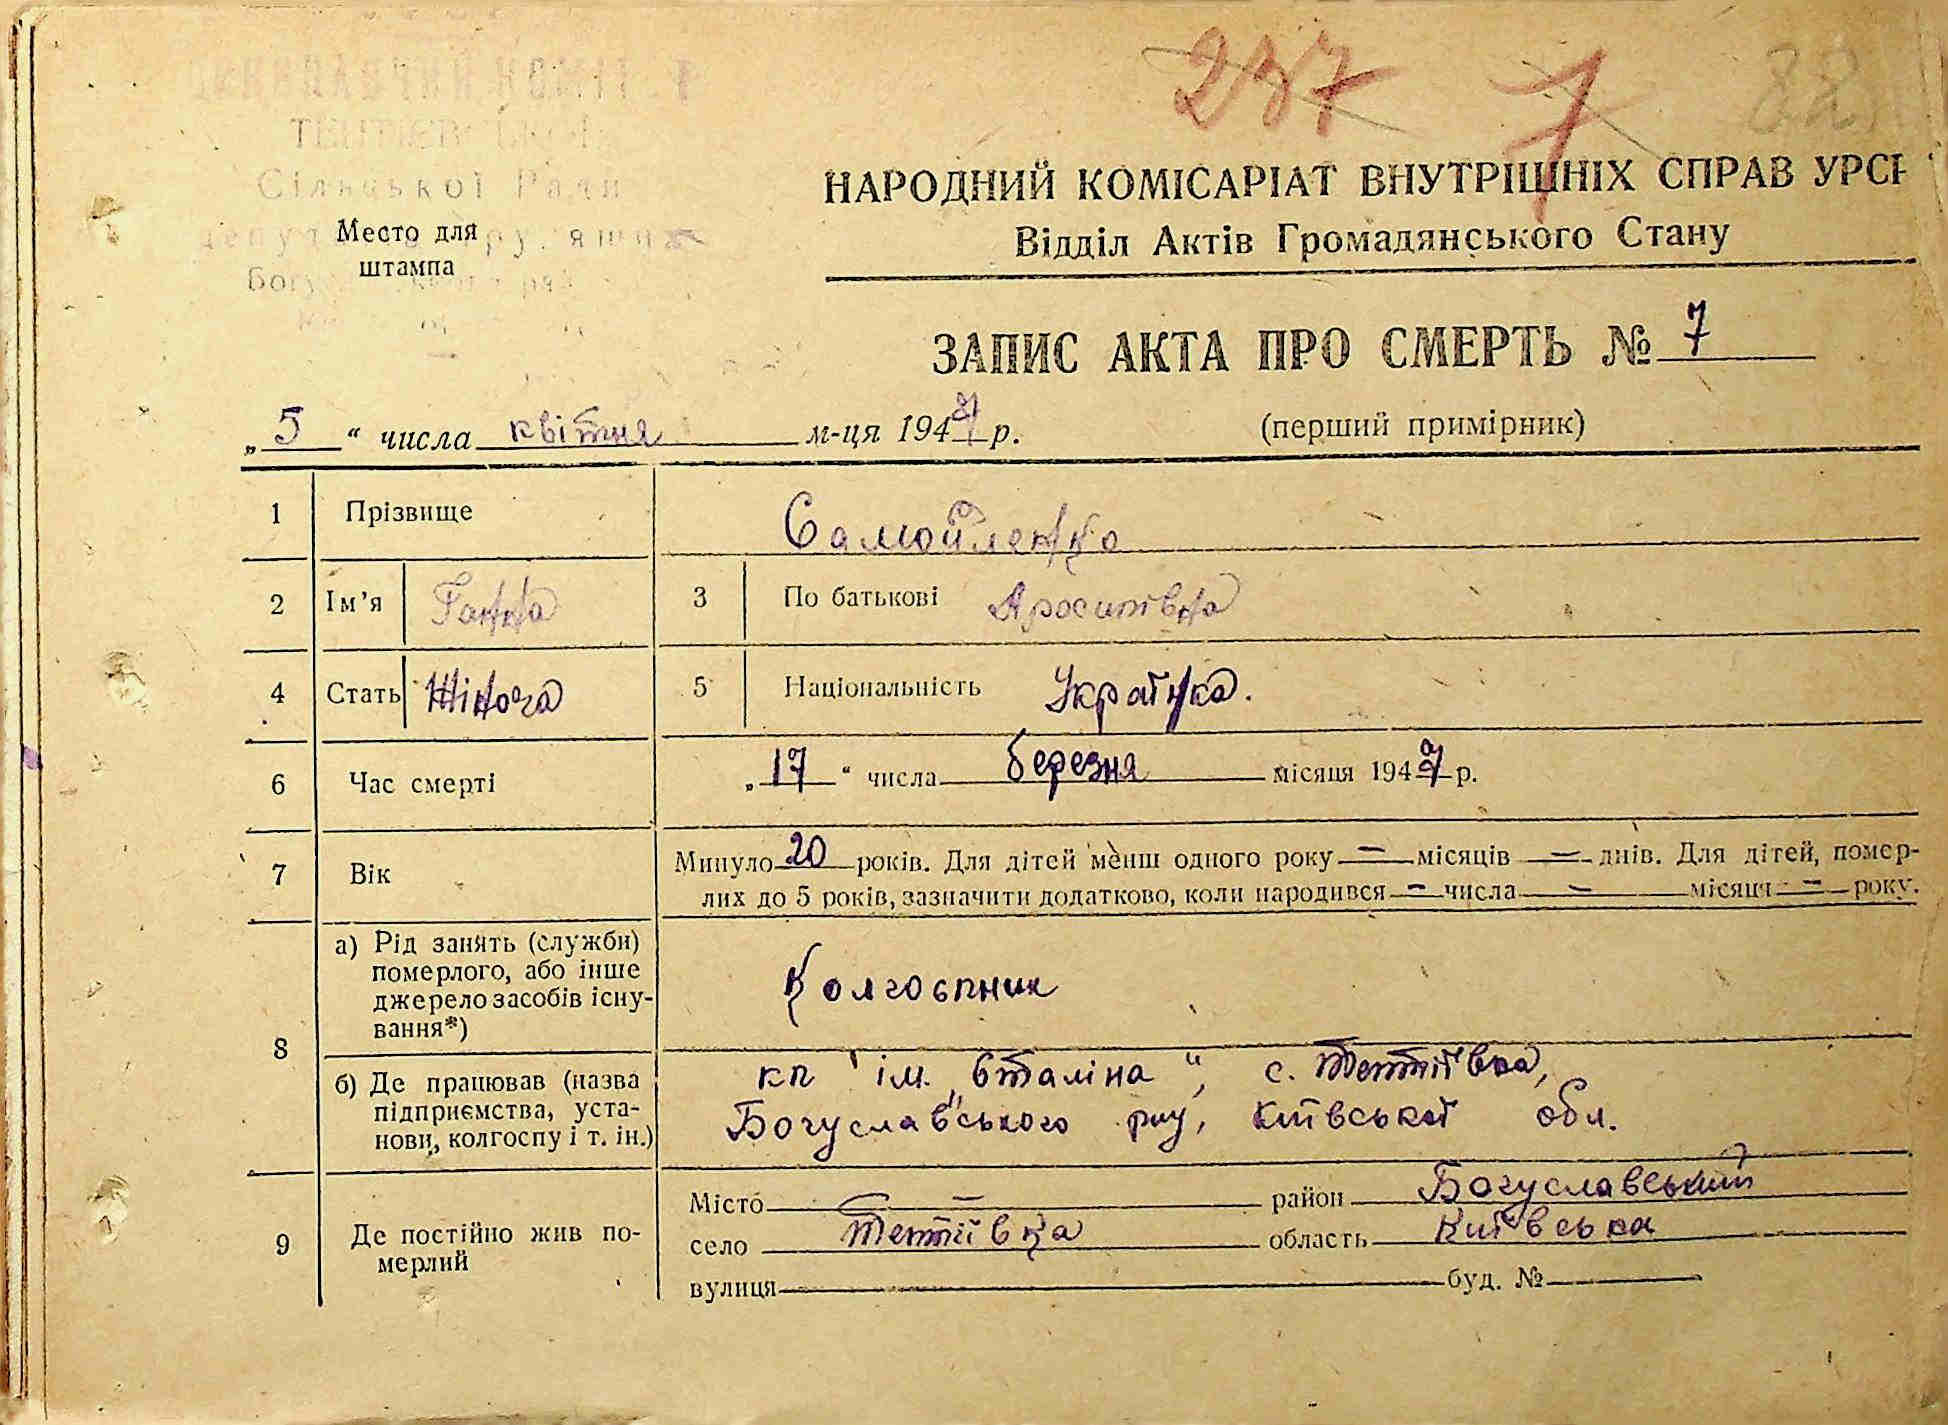 237 7 88
ТЕПТІЄВСЬКОЇ
Сільської Ради
НАРОДНИЙ КОМІСАРІАТ ВНУТРІШНІХ СПРАВ УРСР
Место для
штампа
Відділ Актів Громадянського Стану
ЗАПИС АКТА ПРО СМЕРТЬ № 7
„5“ числа квітня м-ця 1947 р. (перший примірник)
1 Прізвище Самойленко
2 Ім’я Ганна 3 По батькові Яросипівна
4 Стать Жіноча 5 Національність Українка.
6 Час смерті „17“ числа березня місяця 1947 р.
7 Вік Минуло 20 років. Для дітей менш одного року — місяців — днів. Для дітей, помер-
лих до 5 років, зазначити додатково, коли народився — числа — місяця — року.
8 а) Рід занять (служби)
померлого, або інше
джерело засобів існу-
вання*)
Колгоспник
б) Де працював (назва
підприємства, уста-
нови, колгоспу і т. ін.)
кп ім. „Сталіна“, с. Тептіївка,
Богуславського р-ну, Київської обл.
9 Де постійно жив по-
мерлий
Місто — район Богуславський
село Тептіївка область Київська
вулиця буд. №